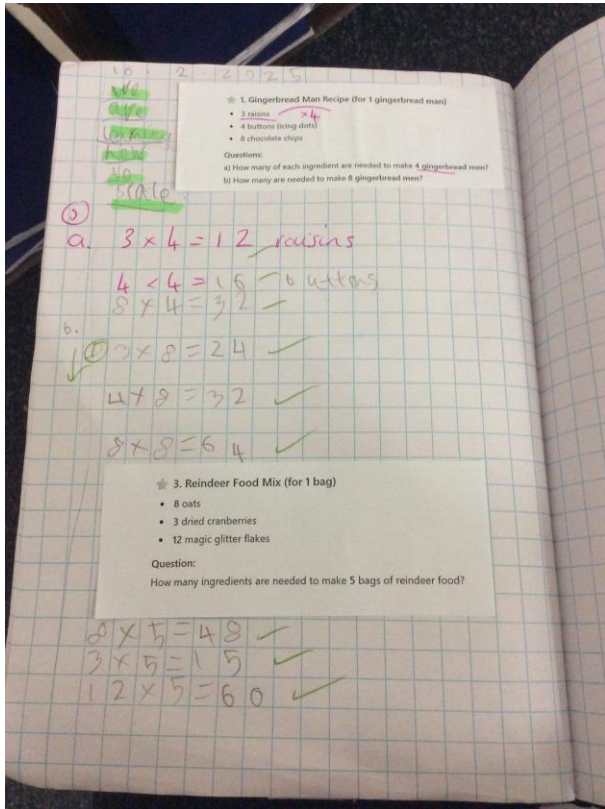 10. 2 2025
We
are
how
to
scale.
☆ 1. Gingerbread Man Recipe (for 1 gingerbread man)
• 3 raisins ×4
• 4 buttons (icing dots)
• 8 chocolate chips
Questions:
a) How many of each ingredient are needed to make 4 gingerbread men?
b) How many are needed to make 8 gingerbread men?
a. 3 × 4 = 12 raisins
4 × 4 = 16 buttons
8 × 4 = 32
b.
3 × 8 = 24
4 × 8 = 32
8 × 8 = 64
☆ 3. Reindeer Food Mix (for 1 bag)
• 8 oats
• 3 dried cranberries
• 12 magic glitter flakes
Question:
How many ingredients are needed to make 5 bags of reindeer food?
8 × 5 = 48
3 × 5 = 15
12 × 5 = 60